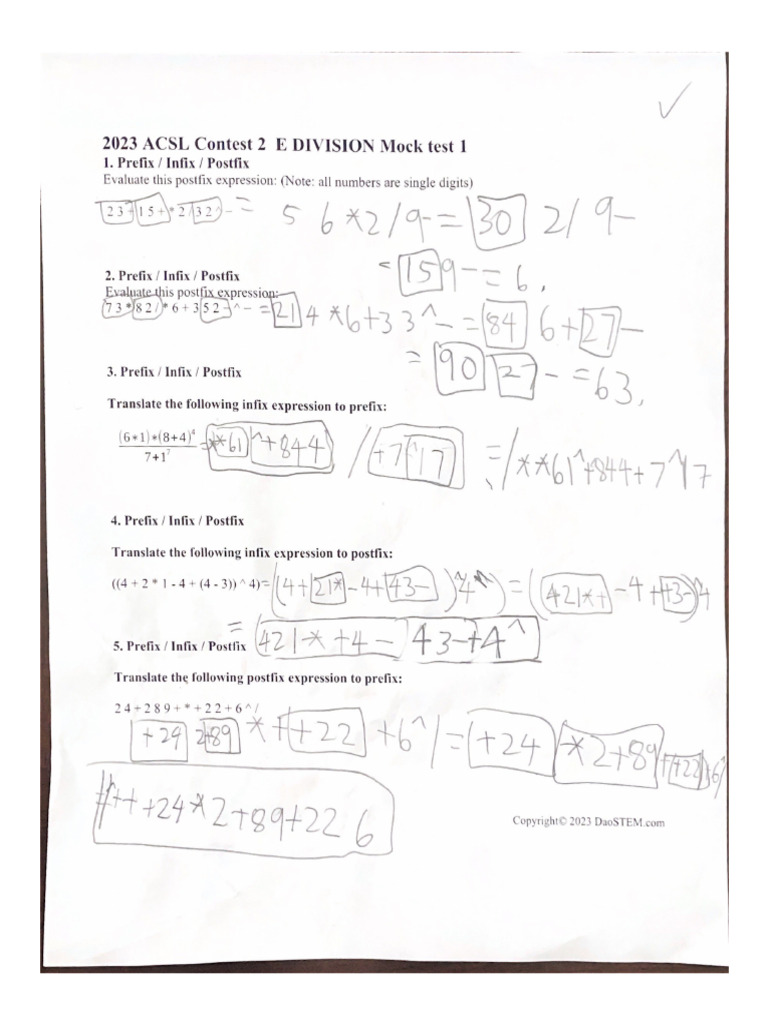 2023 ACSL Contest 2 E DIVISION Mock test 1
1. Prefix / Infix / Postfix
Evaluate this postfix expression: (Note: all numbers are single digits)
2 3 + 1 5 + * 2 / 3 2 ^ - = 5 6 * 2 / 9 - = 30 2 / 9 -
= 15 9 - = 6.
2. Prefix / Infix / Postfix
Evaluate this postfix expression:
7 3 * 8 2 / * 6 + 3 5 2 - ^ - = 21 4 * 6 + 3 3 ^ - = 84 6 + 27 -
= 90 27 - = 63.
3. Prefix / Infix / Postfix
Translate the following infix expression to prefix:
(6*1)*(8+4)^4
7+1^7
= **61 ^+844 / +7^17 = /**61^+844+7^17
4. Prefix / Infix / Postfix
Translate the following infix expression to postfix:
((4 + 2 * 1 - 4 + (4 - 3)) ^ 4) = (4+21*-4+43-)^4) = ((421*+-4+43-)^4
= 421*+4-43-+4^
5. Prefix / Infix / Postfix
Translate the following postfix expression to prefix:
2 4 + 2 8 9 + * + 2 2 + 6 ^ /
+29 2+89 *++22 +6^/ = +24 *2+89
+24*2+89+22 6
Copyright© 2023 DaoSTEM.com